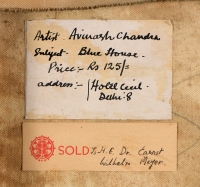 Artist. Avinash Chandra
Subject- Blue House.
Price:- Rs 125/=
address:- Hotel Cecil.
Delhi-8
SOLD H.E. Dr. Ernst
Wilhelm Meyer.